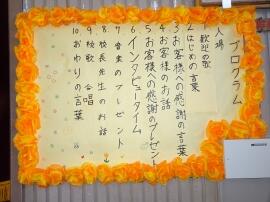 プログラム
入場
歓迎の歌
2 はじめの言葉
3 お客様への感謝の言葉
4 お客様のお話
5 お客様への感謝のプレゼント
6 インタビュータイム
7 音楽のプレゼント
8 校長先生のお話
9 校歌 合唱
10 おわりの言葉